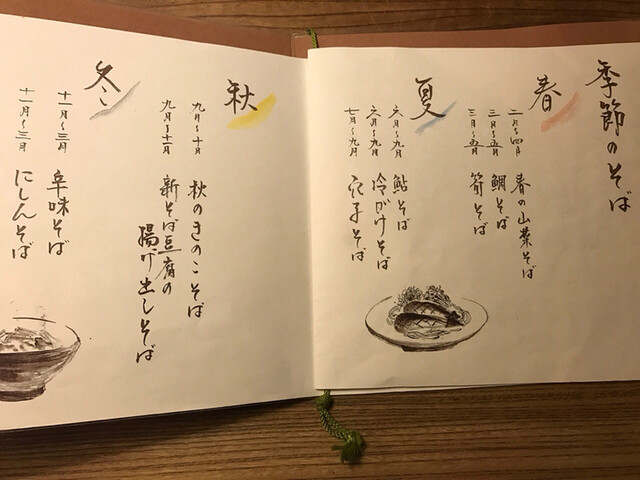 季節のそば
春
二月〜四月 春の山菜そば
三月〜五月 鯛そば
三月〜五月 筍そば
夏
六月〜九月 鮎そば
六月〜九月 冷がけそば
七月〜九月 そば
秋
九月〜十月 秋のきのこそば
九月〜十一月 新そば豆腐の
揚げ出しそば
冬
十一月〜三月 辛味そば
十一月〜三月 にしんそば